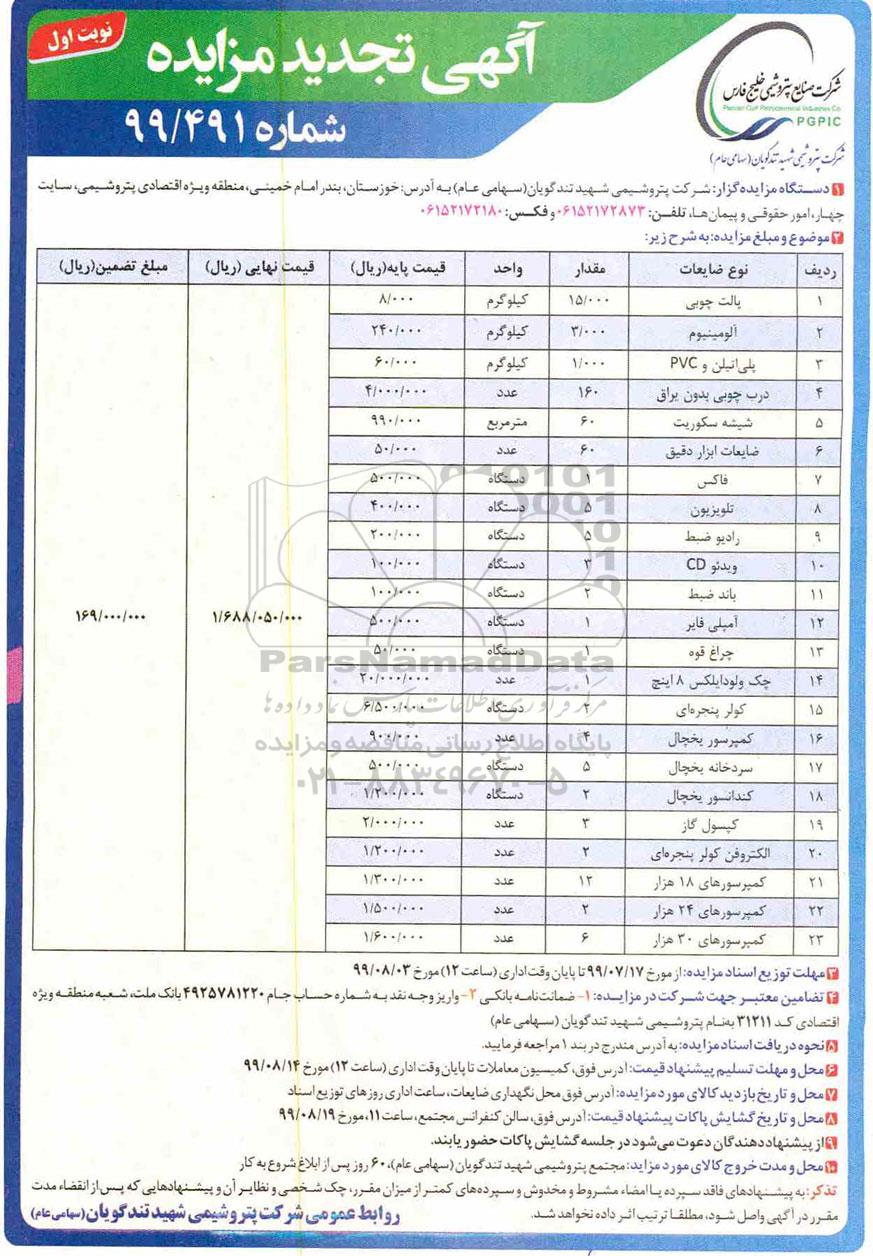 نوبت اول
آگهی تجدید مزایده
شماره ۹۹/۴۹۱
شرکت صنایع پتروشیمی خلیج فارس
Persian Gulf Petrochemical Industries Co
PGPIC
شرکت پتروشیمی شهید تندگویان (سهامی عام)
۱ دستگاه مزایده‌گزار: شرکت پتروشیمی شهید تندگویان(سهامی عام) به آدرس: خوزستان، بندر امام خمینی، منطقه ویژه اقتصادی پتروشیمی، سایت
چهار، امور حقوقی و پیمان‌ها، تلفن: ۰۶۱۵۲۱۷۲۸۷۳ و فکس: ۰۶۱۵۲۱۷۲۱۸۰
۲ موضوع و مبلغ مزایده: به شرح زیر:
ردیف نوع ضایعات مقدار واحد قیمت پایه(ریال) قیمت نهایی (ریال) مبلغ تضمین(ریال)
۱ پالت چوبی ۱۵/۰۰۰ کیلوگرم ۸/۰۰۰
۲ آلومینیوم ۳/۰۰۰ کیلوگرم ۲۴۰/۰۰۰
۳ پلی‌اتیلن و PVC ۱/۰۰۰ کیلوگرم ۶۰/۰۰۰
۴ درب چوبی بدون یراق ۱۶۰ عدد ۴/۰۰۰/۰۰۰
۵ شیشه سکوریت ۶۰ مترمربع ۹۹۰/۰۰۰
۶ ضایعات ابزار دقیق ۶۰ عدد ۵۰/۰۰۰
۷ فاکس ۱ دستگاه ۵۰۰/۰۰۰
۸ تلویزیون ۵ دستگاه ۴۰۰/۰۰۰
۹ رادیو ضبط ۵ دستگاه ۲۰۰/۰۰۰
۱۰ ویدئو CD ۳ دستگاه ۱۰۰/۰۰۰
۱۱ باند ضبط ۲ دستگاه ۱۰۰/۰۰۰
۱۲ آمپلی فایر ۱ دستگاه ۵۰۰/۰۰۰ ۱/۶۸۸/۰۵۰/۰۰۰ ۱۶۹/۰۰۰/۰۰۰
۱۳ چراغ قوه ۱ دستگاه ۵۰/۰۰۰
ParsNamadData
۱۴ چک ولودایلکس ۸ اینچ ۱ عدد ۲۰/۰۰۰/۰۰۰
مرکز فرآوری اطلاعات پارس نماد داده ها
۱۵ کولر پنجره‌ای ۲ دستگاه ۶/۵۰۰/۰۰۰
۱۶ کمپرسور یخچال ۴ عدد ۹۰۰/۰۰۰
پایگاه اطلاع رسانی مناقصه و مزایده
۱۷ سردخانه یخچال ۵ دستگاه ۵۰۰/۰۰۰
۰۲۱-۸۸۳۴۹۶۷۰-۵
۱۸ کندانسور یخچال ۲ دستگاه ۱/۲۰۰/۰۰۰
۱۹ کپسول گاز ۳ عدد ۲/۰۰۰/۰۰۰
۲۰ الکتروفن کولر پنجره‌ای ۲ عدد ۱/۲۰۰/۰۰۰
۲۱ کمپرسورهای ۱۸ هزار ۱۲ عدد ۱/۳۰۰/۰۰۰
۲۲ کمپرسورهای ۲۴ هزار ۲ عدد ۱/۵۰۰/۰۰۰
۲۳ کمپرسورهای ۳۰ هزار ۶ عدد ۱/۶۰۰/۰۰۰
۳ مهلت توزیع اسناد مزایده: از مورخ ۹۹/۰۷/۱۷ تا پایان وقت اداری (ساعت ۱۲) مورخ ۹۹/۰۸/۰۳
۴ تضامین معتبر جهت شرکت در مزایده: ۱- ضمانت‌نامه بانکی ۲- واریز وجه نقد به شماره حساب جام ۴۹۲۵۷۸۱۲۲۰ بانک ملت، شعبه منطقه ویژه
اقتصادی کد ۳۱۲۱۱ به‌نام پتروشیمی شهید تندگویان (سهامی عام)
۵ نحوه دریافت اسناد مزایده: به آدرس مندرج در بند ۱ مراجعه فرمایید.
۶ محل و مهلت تسلیم پیشنهاد قیمت: آدرس فوق، کمیسیون معاملات تا پایان وقت اداری (ساعت ۱۲) مورخ ۹۹/۰۸/۱۴
۷ محل و تاریخ بازدید کالای مورد مزایده: آدرس فوق محل نگهداری ضایعات، ساعت اداری روزهای توزیع اسناد
۸ محل و تاریخ گشایش پاکات پیشنهاد قیمت: آدرس فوق، سالن کنفرانس مجتمع، ساعت ۱۱، مورخ ۹۹/۰۸/۱۹
۹ از پیشنهاددهندگان دعوت می‌شود در جلسه گشایش پاکات حضور یابند.
۱۰ محل و مدت خروج کالای مورد مزاید: مجتمع پتروشیمی شهید تندگویان (سهامی عام)، ۶۰ روز پس از ابلاغ شروع به کار
تذکر: به پیشنهادهای فاقد سپرده یا امضاء مشروط و مخدوش و سپرده‌های کمتر از میزان مقرر، چک شخصی و نظایر آن و پیشنهادهایی که پس از انقضاء مدت
مقرر در آگهی واصل شود، مطلقا ترتیب اثر داده نخواهد شد.
روابط عمومی شرکت پتروشیمی شهید تندگویان (سهامی عام)